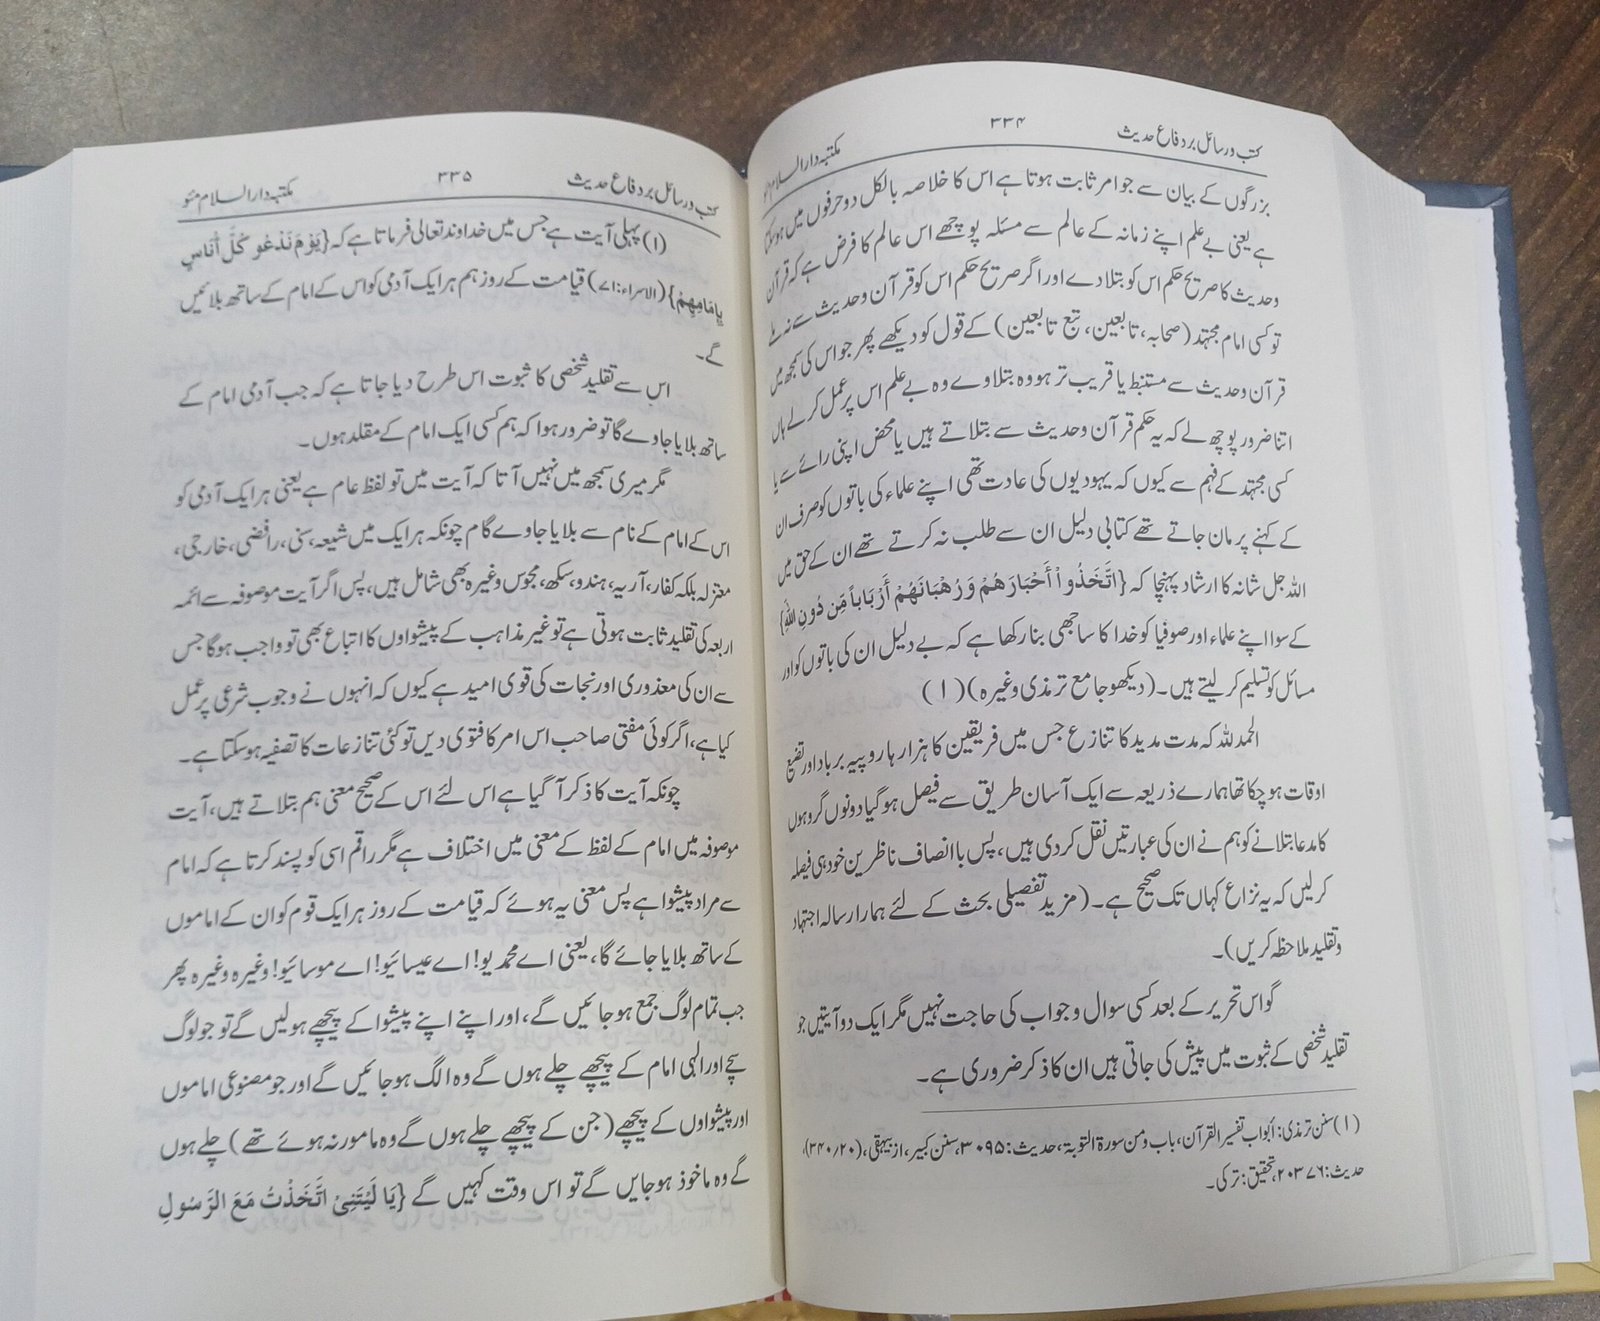 کتب ورسائل بر دفاع حدیث ۳۳۴ مکتبہ دارالسلام مئو
بزرگوں کے بیان سے جو امر ثابت ہوتا ہے اس کا خلاصہ بالکل دو حرفوں میں ہوسکتا
ہے یعنی بے علم اپنے زمانہ کے عالم سے مسئلہ پوچھے اس عالم کا فرض ہے کہ قرآن
وحدیث کا صریح حکم اس کو بتلا دے اور اگر صریح حکم اس کو قرآن وحدیث سے نہ ملے
تو کسی امام مجتہد (صحابہ، تابعین، تبع تابعین) کے قول کو دیکھے پھر جو اس کی سمجھ میں
قرآن وحدیث سے مستنبط یا قریب تر ہو وہ بتلاوے وہ بے علم اس پر عمل کرلے ہاں
اتنا ضرور پوچھ لے کہ یہ حکم قرآن وحدیث سے بتلاتے ہیں یا محض اپنی رائے سے یا
کسی مجتہد کے فہم سے کیوں کہ یہودیوں کی عادت تھی اپنے علماء کی باتوں کو صرف ان
کے کہنے پر مان جاتے تھے کتابی دلیل ان سے طلب نہ کرتے تھے ان کے حق میں
اللہ جل شانہ کا ارشاد پہنچا کہ {اتَّخَذُواْ أَحْبَارَهُمْ وَرُهْبَانَهُمْ أَرْبَاباً مِّن دُونِ اللّٰهِ}
کے سوا اپنے علماء اور صوفیا کو خدا کا ساجھی بنا رکھا ہے کہ بے دلیل ان کی باتوں کو اور
مسائل کو تسلیم کرلیتے ہیں۔ (دیکھو جامع ترمذی وغیرہ) (۱)
الحمدللہ کہ مدت مدید کا تنازع جس میں فریقین کا ہزارہا روپیہ برباد اور تضیع
اوقات ہوچکا تھا ہمارے ذریعہ سے ایک آسان طریق سے فیصل ہوگیا دونوں گروہوں
کا مدعا بتلانے کو ہم نے ان کی عبارتیں نقل کردی ہیں، پس باانصاف ناظرین خود ہی فیصلہ
کرلیں کہ یہ نزاع کہاں تک صحیح ہے۔ (مزید تفصیلی بحث کے لئے ہمارا رسالہ اجتہاد
وتقلید ملاحظہ کریں)۔
گو اس تحریر کے بعد کسی سوال وجواب کی حاجت نہیں مگر ایک دو آیتیں جو
تقلید شخصی کے ثبوت میں پیش کی جاتی ہیں ان کا ذکر ضروری ہے۔
(۱) سنن ترمذی: أبواب تفسیر القرآن، باب ومن سورة التوبة، حدیث: ۳۰۹۵، سنن کبیر، از بیہقی، (۳۴۰/۲۰)،
حدیث: ۲۰۳۷۶، تحقیق: ترکی۔
کتب ورسائل بر دفاع حدیث ۳۳۵ مکتبہ دارالسلام مئو
(۱) پہلی آیت ہے جس میں خداوند تعالی فرماتا ہے کہ {يَوْمَ نَدْعُو كُلَّ أُنَاسٍ
بِإِمَامِهِمْ} (الاسراء: ۷۱) قیامت کے روز ہم ہر ایک آدمی کو اس کے امام کے ساتھ بلائیں
گے۔
اس سے تقلید شخصی کا ثبوت اس طرح دیا جاتا ہے کہ جب آدمی امام کے
ساتھ بلایا جاوے گا تو ضرور ہوا کہ ہم کسی ایک امام کے مقلد ہوں۔
مگر میری سمجھ میں نہیں آتا کہ آیت میں تو لفظ عام ہے یعنی ہر ایک آدمی کو
اس کے امام کے نام سے بلایا جاوے گا م چونکہ ہر ایک میں شیعہ، سنی، رافضی، خارجی،
معتزلہ بلکہ کفار، آریہ، ہندو، سکھ، مجوس وغیرہ بھی شامل ہیں، پس اگر آیت موصوفہ سے ائمہ
اربعہ کی تقلید ثابت ہوتی ہے تو غیر مذاہب کے پیشواوں کا اتباع بھی تو واجب ہوگا جس
سے ان کی معذوری اور نجات کی قوی امید ہے کیوں کہ انہوں نے وجوب شرعی پر عمل
کیا ہے، اگر کوئی مفتی صاحب اس امر کا فتوی دیں تو کئی تنازعات کا تصفیہ ہوسکتا ہے۔
چونکہ آیت کا ذکر آگیا ہے اس لئے اس کے صحیح معنی ہم بتلاتے ہیں، آیت
موصوفہ میں امام کے لفظ کے معنی میں اختلاف ہے مگر راقم اسی کو پسند کرتا ہے کہ امام
سے مراد پیشوا ہے پس معنی یہ ہوئے کہ قیامت کے روز ہر ایک قوم کو ان کے اماموں
کے ساتھ بلایا جائے گا، یعنی اے محمدیو! اے عیسائیو! اے موسائیو! وغیرہ وغیرہ پھر
جب تمام لوگ جمع ہوجائیں گے، اور اپنے اپنے پیشوا کے پیچھے ہولیں گے تو جو لوگ
سچے اور الہی امام کے پیچھے چلے ہوں گے وہ الگ ہوجائیں گے اور جو مصنوعی اماموں
اور پیشواوں کے پیچھے (جن کے پیچھے چلے ہوں گے وہ مامور نہ ہوئے تھے) چلے ہوں
گے وہ ماخوذ ہوجایں گے تو اس وقت کہیں گے {يَا لَيْتَنِيْ اتَّخَذْتُ مَعَ الرَّسُولِ